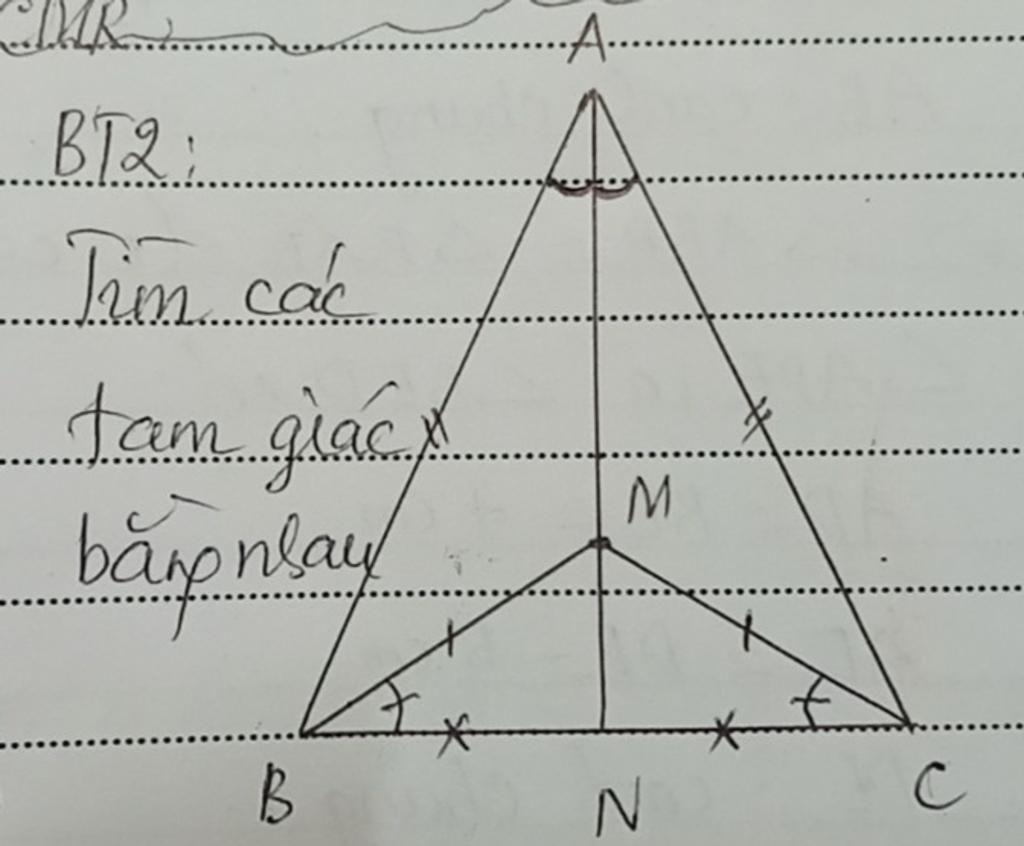 CMR
A
BT2:
Tìm các
tam giác
bằng nhau
M
B
N
C